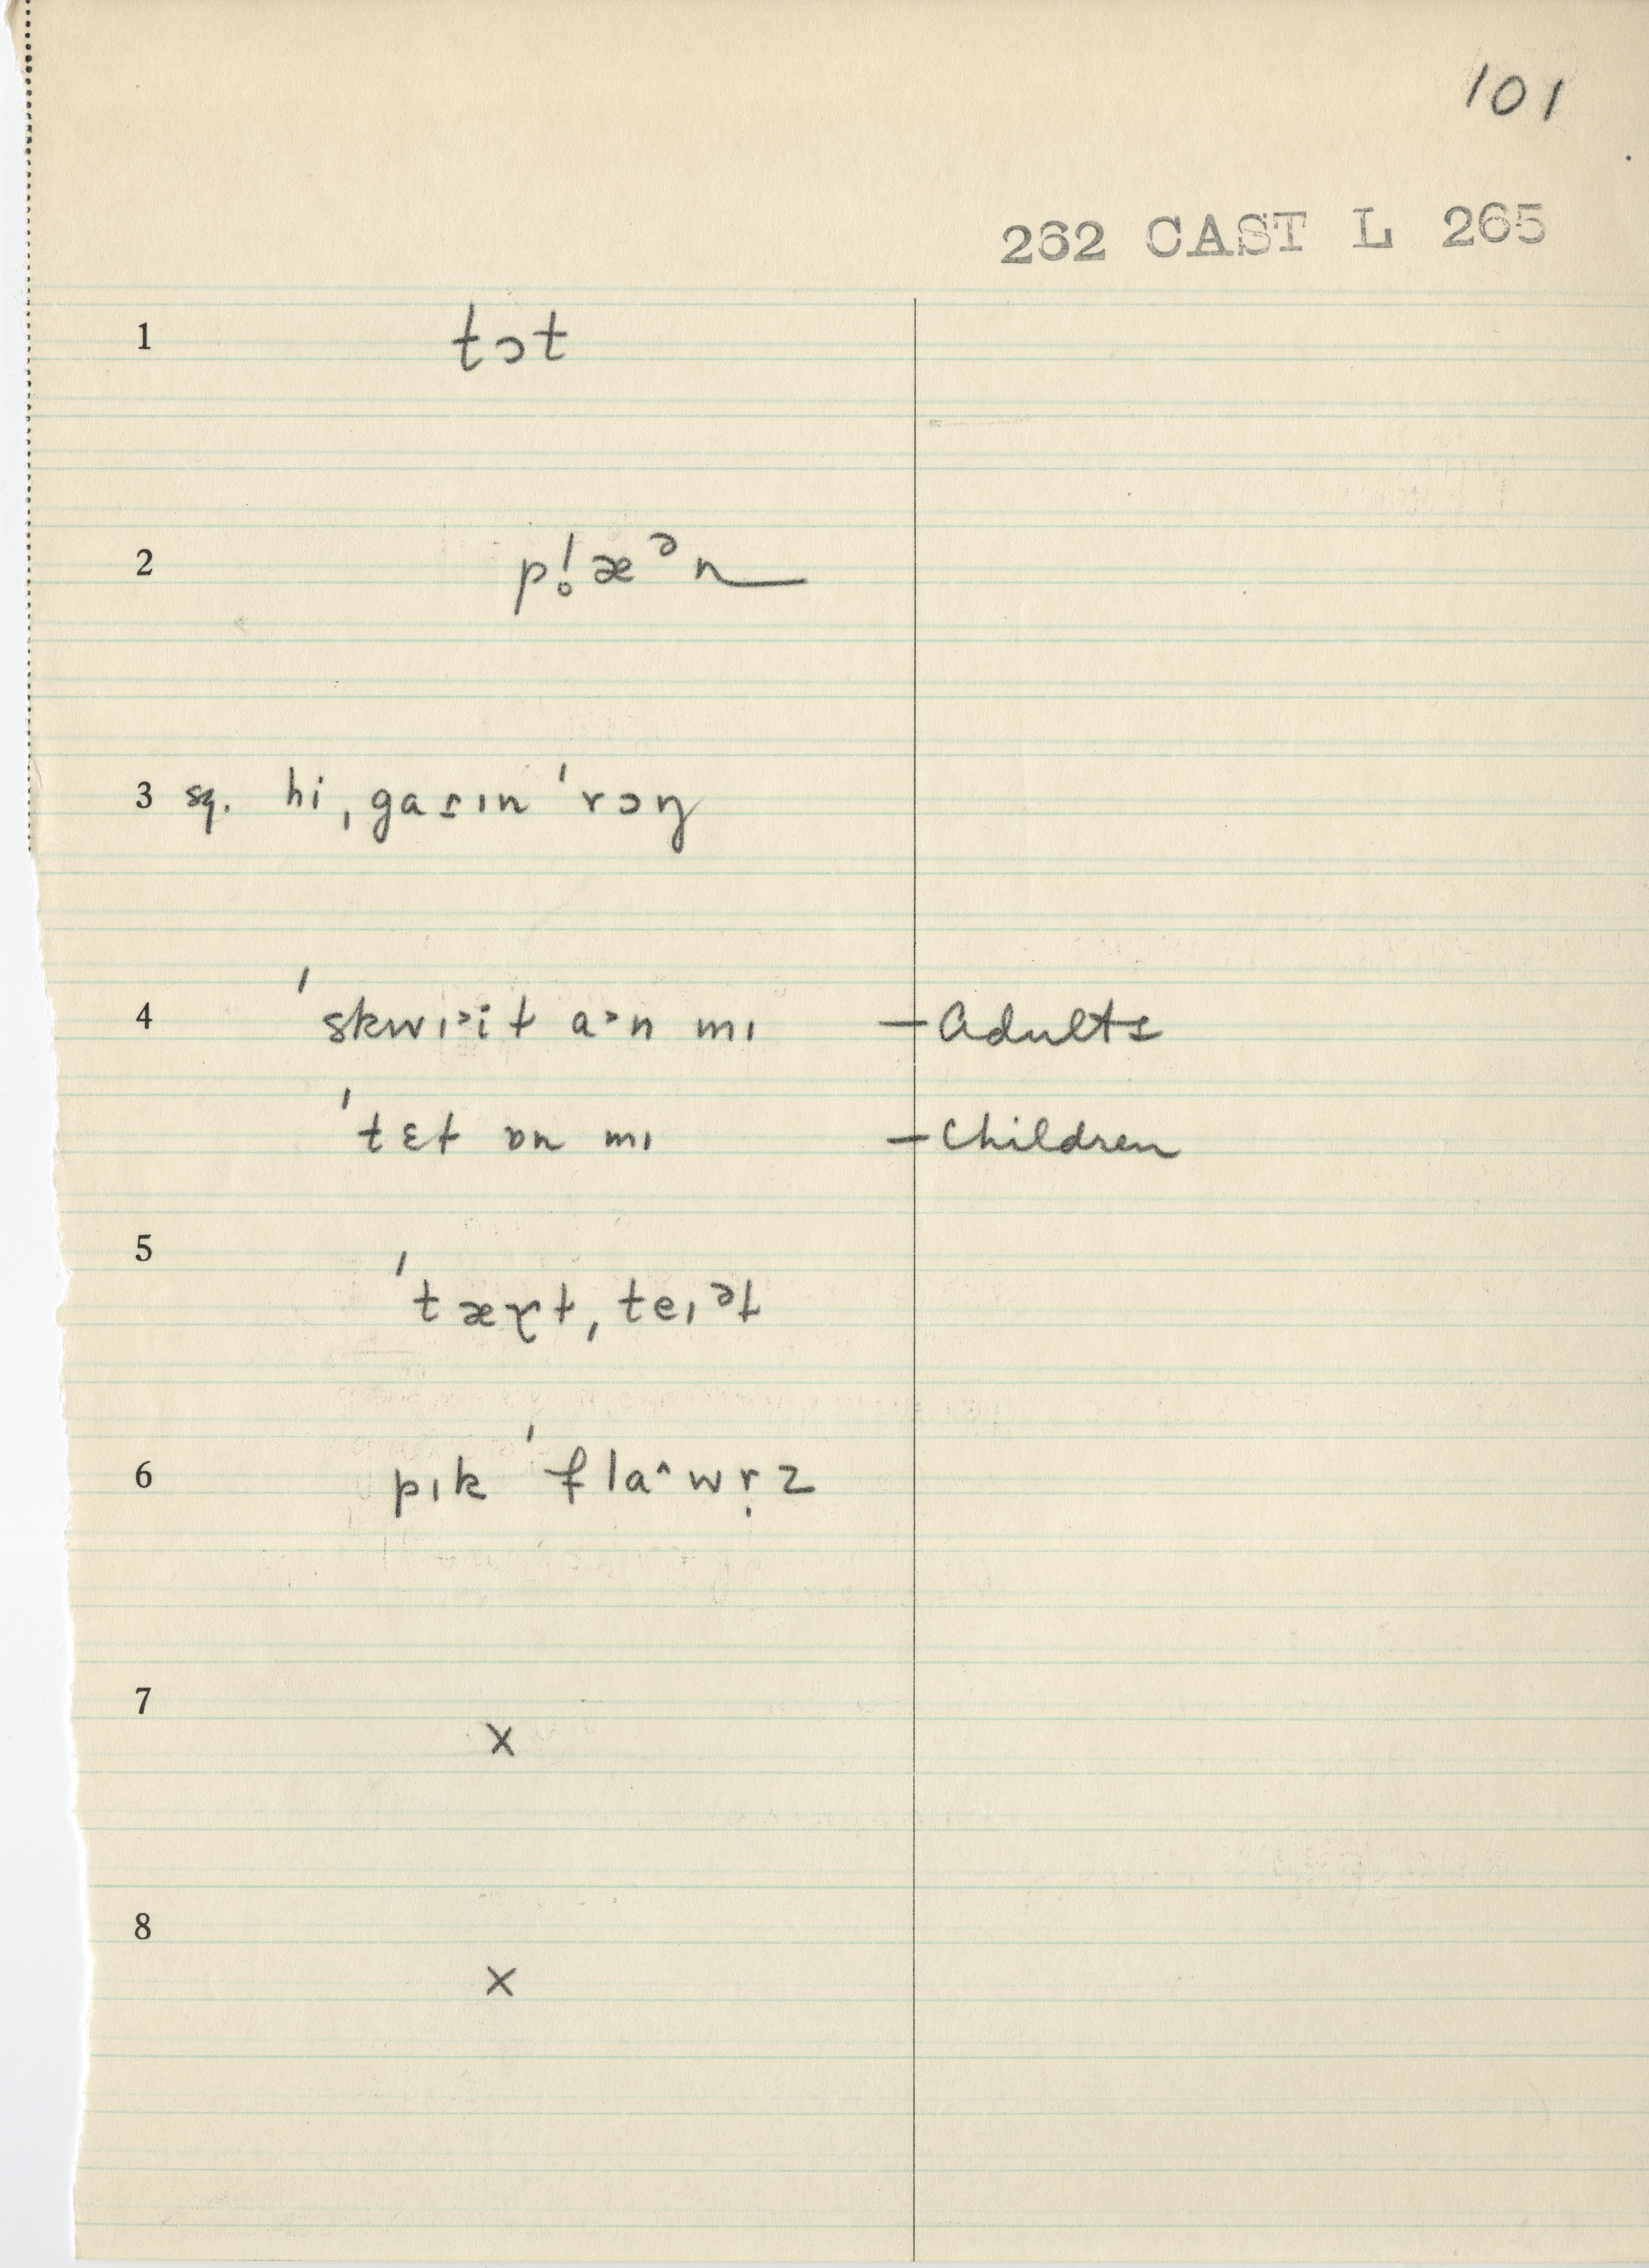 101
262 CAST L 265
1 tɔt
2 p!̥æᵊn
3 sq. hi ˌgaɾɪn ˈrɔŋ
4 ˈskwɪ˃it a˃n mɪ — Adults
ˈtɛt ɒn mɪ — Children
5 ˈtæɤt, teɪᵊt
6 pɪk ˈfla˄wṛz
7 x
8 x